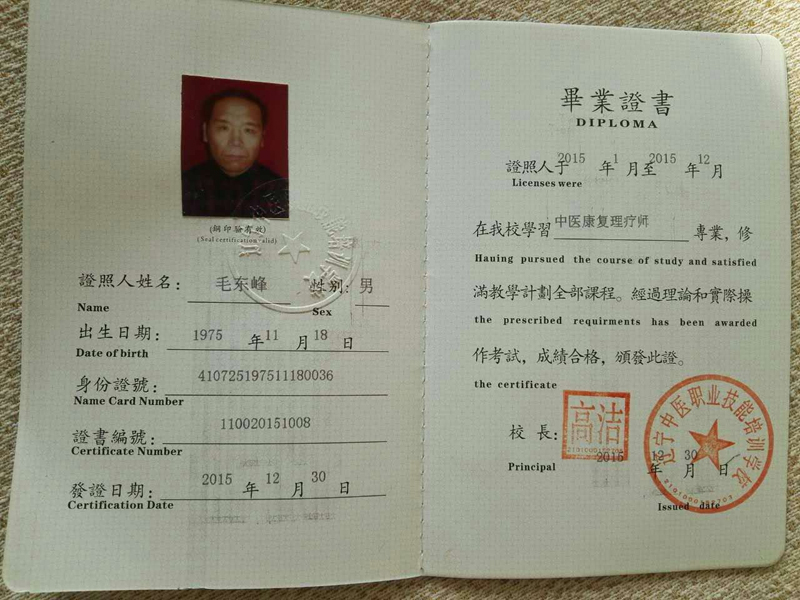 (鋼印騐有效)
(Seal certification valid)
證照人姓名: 毛东峰 性别: 男
Name Sex
出生日期: 1975 年 11 月 18 日
Date of birth
身份證號: 410725197511180036
Name Card Number
證書編號: 110020151008
Certificate Number
發證日期: 2015 年 12 月 30 日
Certification Date
畢業證書
DIPLOMA
證照人于 2015 年 1 月至 2015 年 12 月
Licenses were
在我校學習 中医康复理疗师 專業,修
Hauing pursued the course of study and satisfied
滿教學計劃全部課程。經過理論和實際操
the prescribed requirments has been awarded
作考試,成績合格,頒發此證。
the certificate
校長: 高洁
Principal
2015 年 12 月 30 日
Issued date
辽宁中医职业技能培训学校